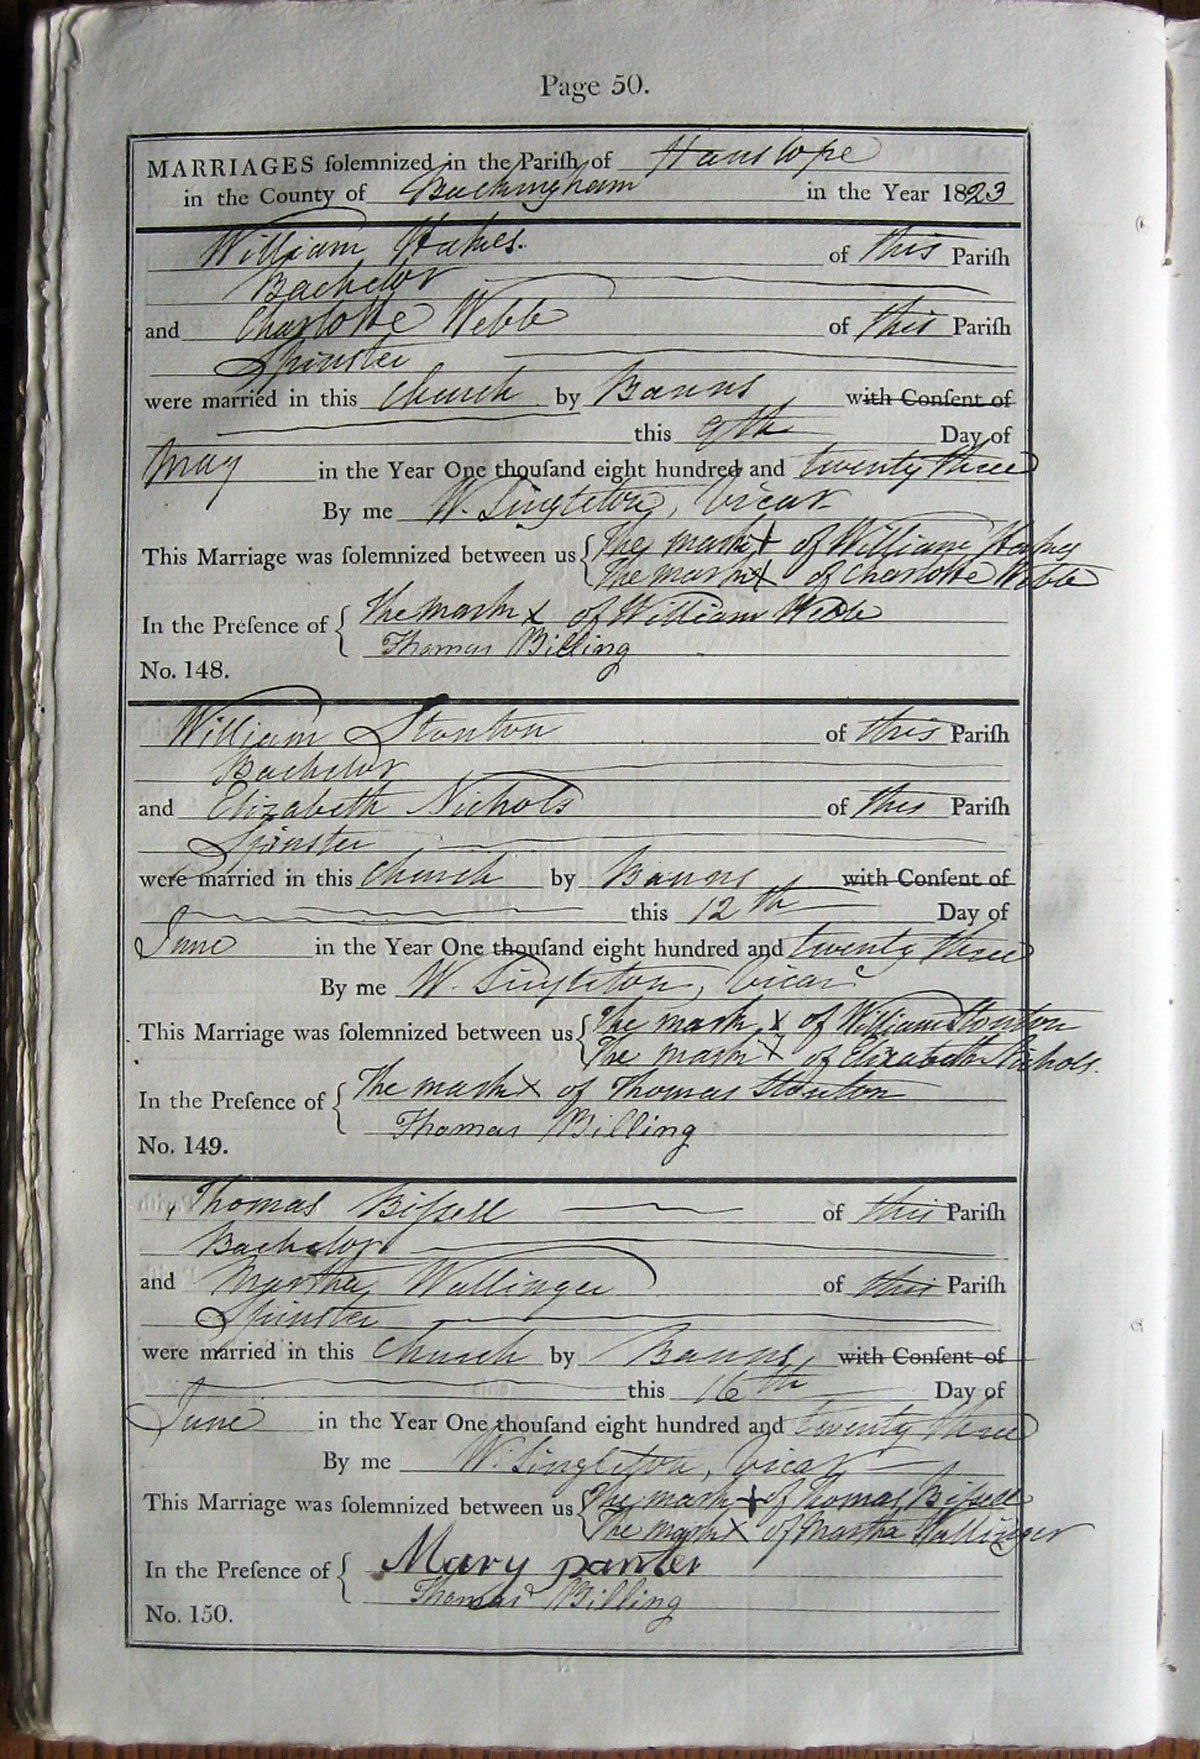 Page 50.
MARRIAGES ſolemnized in the Pariſh of Hanslope
in the County of Buckingham in the Year 1823
William of this Pariſh
Bachelor
and Charlotte Webb of this Pariſh
Spinster
were married in this Church by Banns with Conſent of
this 9th Day of
May in the Year One thouſand eight hundred and twenty three
By me W. Singleton, Vicar
This Marriage was ſolemnized between us { The mark X of William
The mark X of Charlotte Webb
In the Preſence of { The mark X of William Webb
Thomas Billing
No. 148.
William Stonton of this Pariſh
Bachelor
and Elizabeth Nichols of this Pariſh
Spinster
were married in this Church by Banns with Conſent of
this 12th Day of
June in the Year One thouſand eight hundred and twenty three
By me W. Singleton, Vicar
This Marriage was ſolemnized between us { The mark X of William Stonton
The mark X of Elizabeth Nichols.
In the Preſence of { The mark X of Thomas Stonton
Thomas Billing
No. 149.
Thomas Biſsell of this Pariſh
Bachelor
and Martha Wallinger of this Pariſh
Spinster
were married in this Church by Banns with Conſent of
this 16th Day of
June in the Year One thouſand eight hundred and twenty three
By me W. Singleton, Vicar
This Marriage was ſolemnized between us { The mark X of Thomas Biſsell
The mark X of Martha Wallinger
In the Preſence of { Mary panter
Thomas Billing
No. 150.